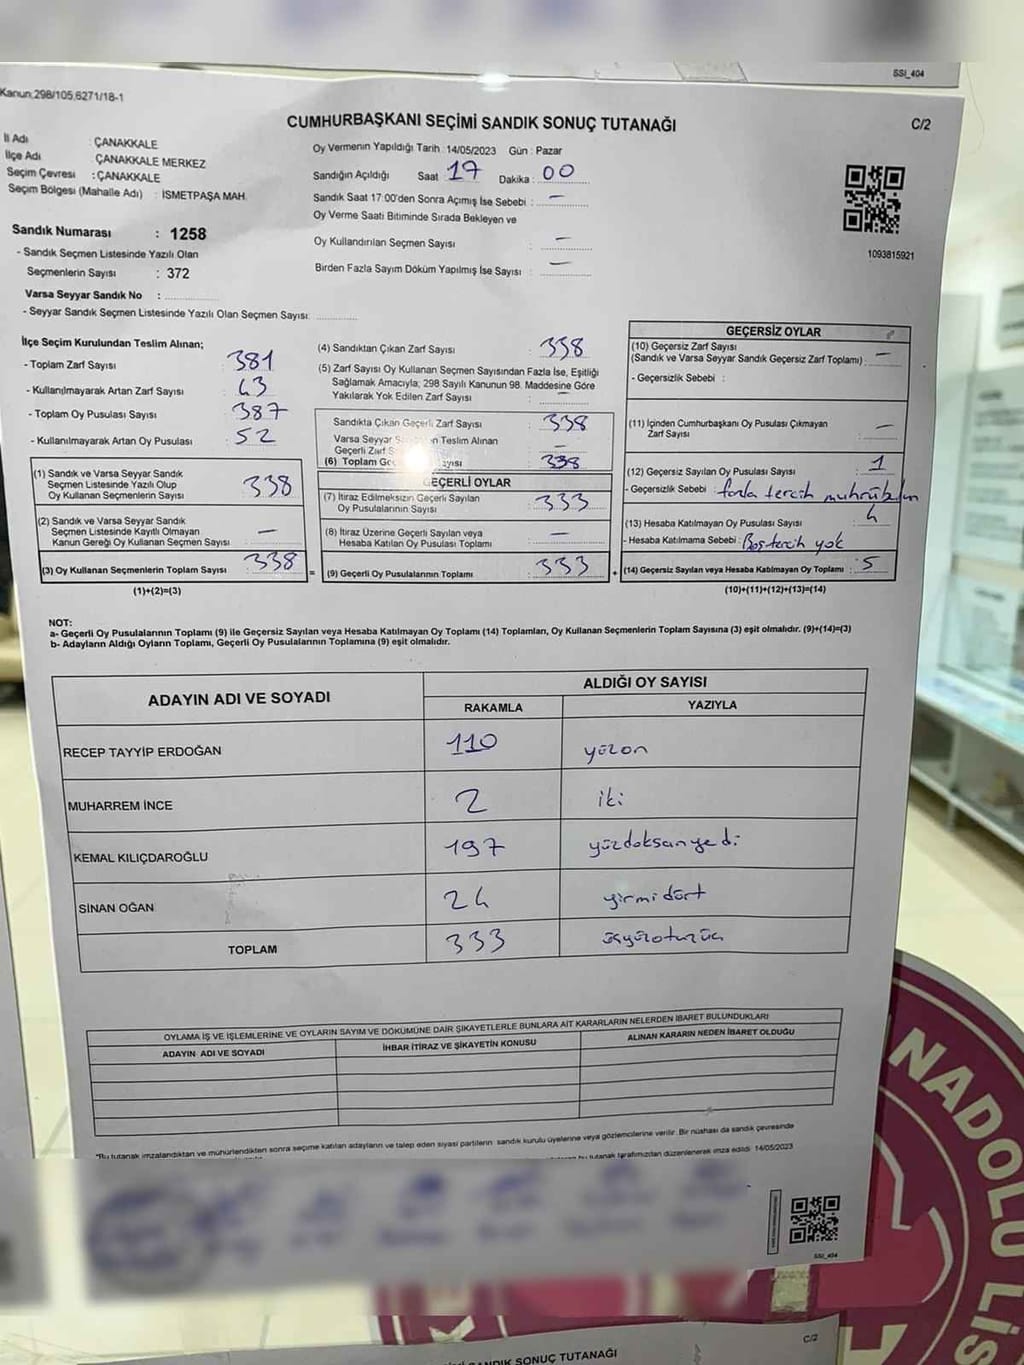 SSI_404
Kanun:298/105,6271/18-1
C/2
CUMHURBAŞKANI SEÇİMİ SANDIK SONUÇ TUTANAĞI
İl Adı : ÇANAKKALE
İlçe Adı ÇANAKKALE MERKEZ
Seçim Çevresi : ÇANAKKALE
Seçim Bölgesi (Mahalle Adı) : İSMETPAŞA MAH.
Oy Vermenin Yapıldığı Tarih : 14/05/2023 Gün : Pazar
Sandığın Açıldığı Saat 17 Dakika : 00
Sandık Saat 17:00'den Sonra Açımış İse Sebebi : –
Oy Verme Saati Bitiminde Sırada Bekleyen ve
Oy Kullandırılan Seçmen Sayısı : –
Birden Fazla Sayım Döküm Yapılmış İse Sayısı : –
1093815921
Sandık Numarası : 1258
- Sandık Seçmen Listesinde Yazılı Olan
Seçmenlerin Sayısı : 372
Varsa Seyyar Sandık No :
- Seyyar Sandık Seçmen Listesinde Yazılı Olan Seçmen Sayısı:
İlçe Seçim Kurulundan Teslim Alınan;
- Toplam Zarf Sayısı : 381
- Kullanılmayarak Artan Zarf Sayısı : 43
- Toplam Oy Pusulası Sayısı : 387
- Kullanılmayarak Artan Oy Pusulası : 52
(1) Sandık ve Varsa Seyyar Sandık
Seçmen Listesinde Yazılı Olup
Oy Kullanan Seçmenlerin Sayısı : 338
(2) Sandık ve Varsa Seyyar Sandık
Seçmen Listesinde Kayıtlı Olmayan
Kanun Gereği Oy Kullanan Seçmen Sayısı : –
(3) Oy Kullanan Seçmenlerin Toplam Sayısı : 338
(1)+(2)=(3)
(4) Sandıktan Çıkan Zarf Sayısı : 338
(5) Zarf Sayısı Oy Kullanan Seçmen Sayısından Fazla İse, Eşitliği
Sağlamak Amacıyla, 298 Sayılı Kanunun 98. Maddesine Göre
Yakılarak Yok Edilen Zarf Sayısı : –
Sandıkta Çıkan Geçerli Zarf Sayısı : 338
Varsa Seyyar Teslim Alınan
Geçerli : –
(6) Toplam 338
GEÇERLİ OYLAR
(7) İtiraz Edilmeksizin Geçerli Sayılan
Oy Pusulalarının Sayısı : 333
(8) İtiraz Üzerine Geçerli Sayılan veya
Hesaba Katılan Oy Pusulası Toplamı : –
= (9) Geçerli Oy Pusulalarının Toplamı : 333
GEÇERSİZ OYLAR
(10) Geçersiz Zarf Sayısı
(Sandık ve Varsa Seyyar Sandık Geçersiz Zarf Toplamı) : –
- Geçersizlik Sebebi :
(11) İçinden Cumhurbaşkanı Oy Pusulası Çıkmayan
Zarf Sayısı : –
(12) Geçersiz Sayılan Oy Pusulası Sayısı : 1
- Geçersizlik Sebebi : fazla tercih
(13) Hesaba Katılmayan Oy Pusulası Sayısı : 4
- Hesaba Katılmama Sebebi : Boş tercih yok
+ (14) Geçersiz Sayılan veya Hesaba Katılmayan Oy Toplamı : 5
(10)+(11)+(12)+(13)=(14)
NOT:
a- Geçerli Oy Pusulalarının Toplamı (9) ile Geçersiz Sayılan veya Hesaba Katılmayan Oy Toplamı (14) Toplamları, Oy Kullanan Seçmenlerin Toplam Sayısına (3) eşit olmalıdır. (9)+(14)=(3)
b- Adayların Aldığı Oyların Toplamı, Geçerli Oy Pusulalarının Toplamına (9) eşit olmalıdır.
ADAYIN ADI VE SOYADI ALDIĞI OY SAYISI
RAKAMLA YAZIYLA
RECEP TAYYİP ERDOĞAN 110 yüzon
MUHARREM İNCE 2 iki
KEMAL KILIÇDAROĞLU 197 yüzdoksanyedi
SİNAN OĞAN 24 yirmidört
TOPLAM 333 üçyüzotuzüç
OYLAMA İŞ VE İŞLEMLERİNE VE OYLARIN SAYIM VE DÖKÜMÜNE DAİR ŞİKAYETLERLE BUNLARA AİT KARARLARIN NELERDEN İBARET BULUNDUKLARI
ADAYIN ADI VE SOYADI İHBAR İTİRAZ VE ŞİKAYETİN KONUSU ALINAN KARARIN NEDEN İBARET OLDUĞU
"Bu tutanak imzalandıktan ve mühürlendikten sonra seçime katılan adayların ve talep eden siyasi partilerin sandık kurulu üyelerine veya gözlemcilerine verilir. Bir nüshası da sandık çevresinde
tutanak tarafımızdan düzenlenerek imza edildi. 14/05/2023
SSI_404
NADOLU LİS
C/2
SANDIK SONUÇ TUTANAĞI